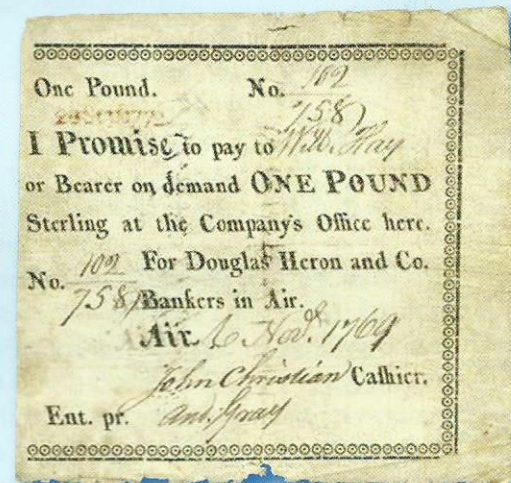 One Pound. No. 102
758
I Promise to pay to Will. Hay
or Bearer on demand ONE POUND
Sterling at the Company's Office here.
No. 102 For Douglas Heron and Co.
758 Bankers in Air.
Air 6 Novr. 1769
John Christian Cashier.
Ent. pr. And. Gray